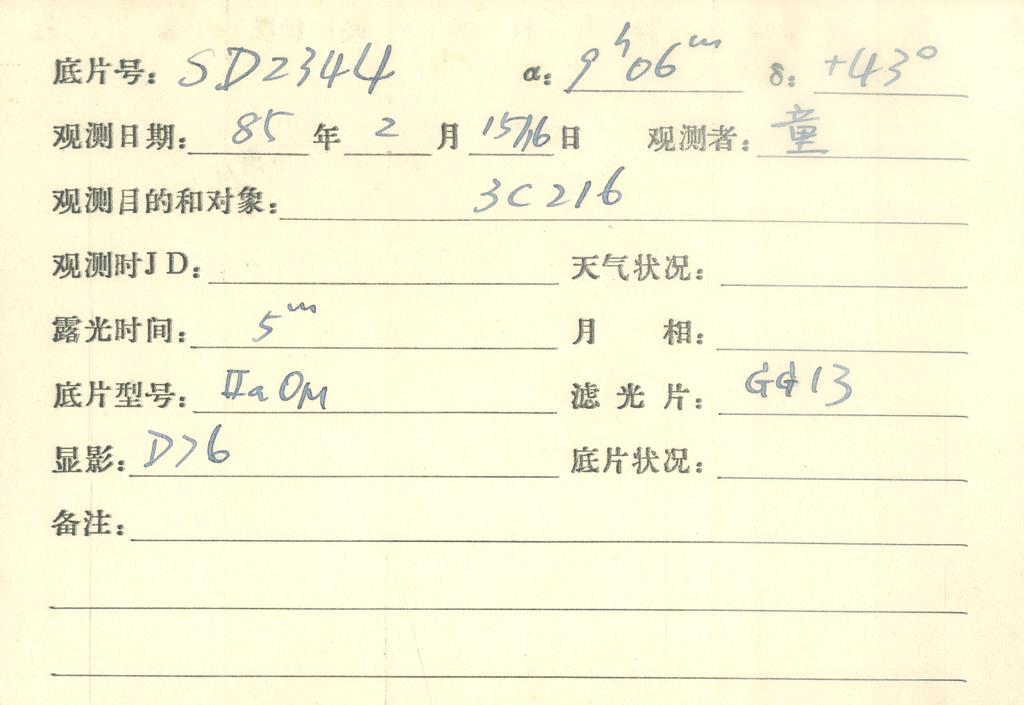 底片号: SD2344 α: 9ʰ06ᵐ δ: +43°
观测日期: 85 年 2 月 15/16 日 观测者: 童
观测目的和对象: 3C216
观测时JD: 天气状况:
露光时间: 5ᵐ 月 相:
底片型号: IIaOM 滤光片: GG13
显影: D76 底片状况:
备注: